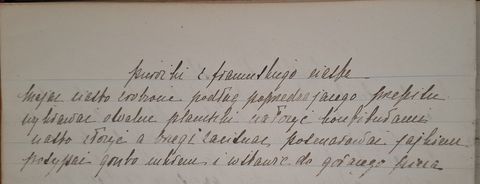 pierożki z francuskiego ciasta
mając ciasto zrobione podług poprzedzającego przepisu
wykrawać owalne plasterki nałożyć konfiturami
ciasto złożyć a brzegi zacisnąć, posmarować jajkiem
posypać grubo cukrem i wstawić do gorącego pieca